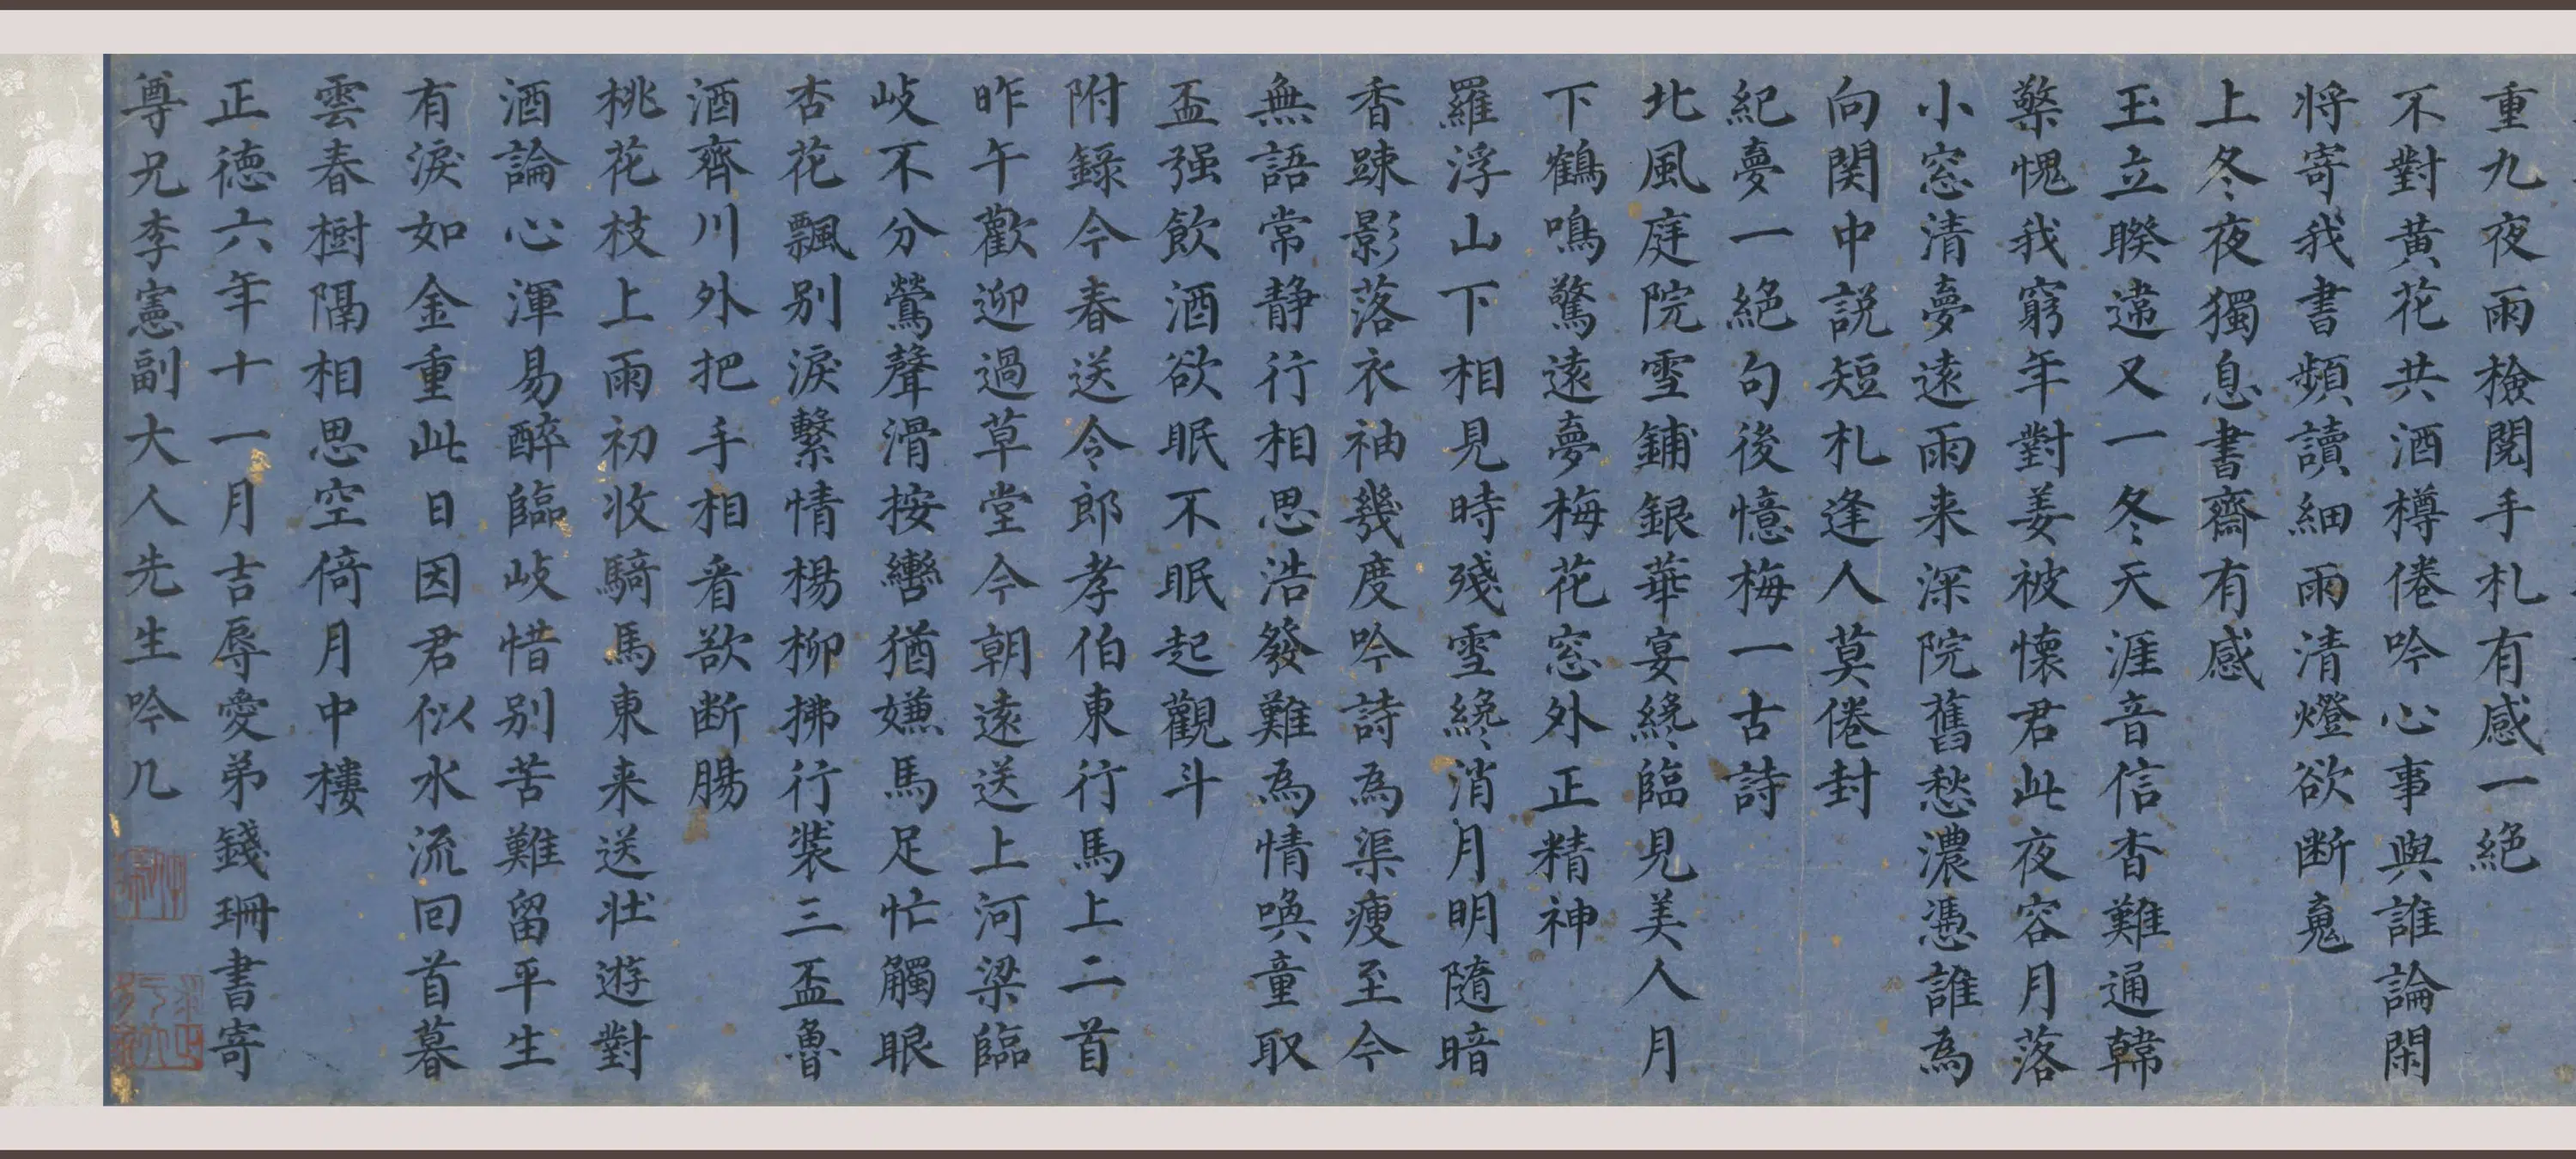 重九夜雨檢閱手札有感一絕
不對黃花共酒樽倦吟心事與誰論閑
将寄我書頻讀細雨清燈欲断䰟
上冬夜獨息書齋有感
玉立暌違又一冬天涯音信杳難通韓
檠愧我窮年對姜被懷君此夜容月落
小窓清夢遠雨来深院舊愁濃憑誰為
向関中説短札逢人莫倦封
紀夢一絕句後憶梅一古詩
北風庭院雪鋪銀華宴纔臨見美人月
下鶴鳴驚遠夢梅花窓外正精神
羅浮山下相見時殘雪纔消月明隨暗
香踈影落衣袖幾度吟詩為渠瘦至今
無語常静行相思浩發難為情喚童取
盃强飲酒欲眠不眠起觀斗
附錄今春送令郎孝伯東行馬上二首
昨午歡迎過草堂今朝遠送上河梁臨
岐不分鶯聲滑按轡猶嫌馬足忙觸眼
杏花飄别淚繫情楊柳拂行裝三盃魯
酒齊川外把手相看欲断腸
桃花枝上雨初收騎馬東来送壮遊對
酒論心渾易醉臨岐惜别苦難留平生
有淚如金重此日因君似水流回首暮
雲春樹隔相思空倚月中樓
正德六年十一月吉辱愛弟錢珊書寄
尊兄李憲副大人先生吟几